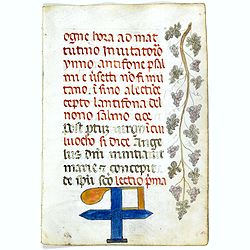 ogne hora ad mat
tutino Inuitatorio
ymno antifone psal
mi e usetti nõ si mu
tano. i fino alectiõ
cepto lantifona del
nono salmo che
post partum virgo i cau
luocho si dice Angelus
dni nuntiauit
marie ⁊ concepit
de spu sco lectio pma